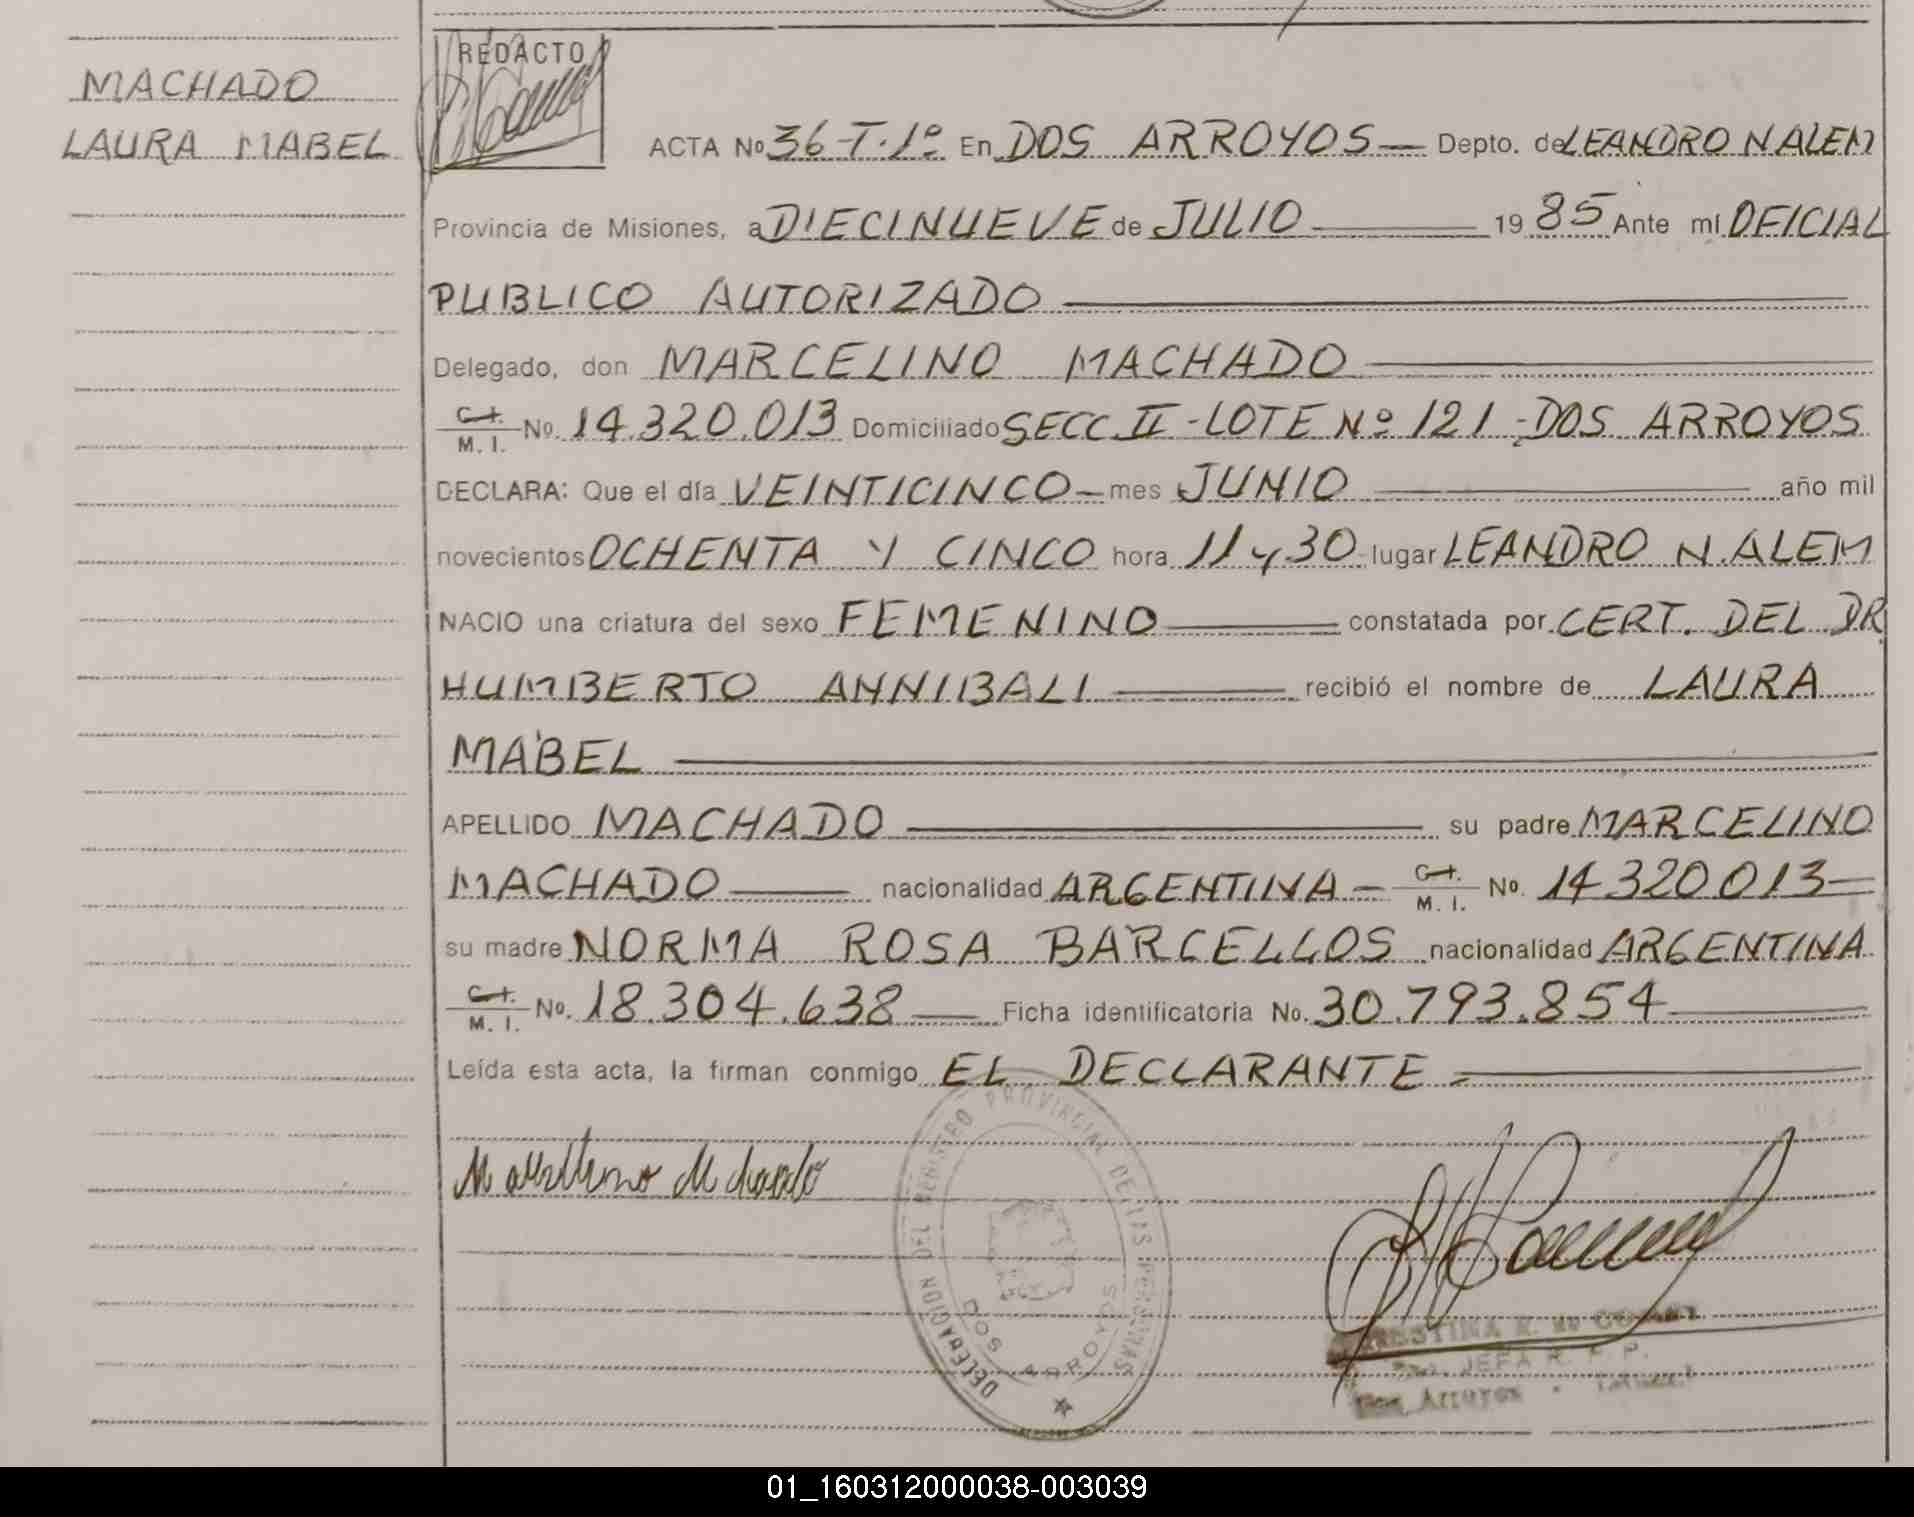 MACHADO
LAURA MABEL
REDACTO
ACTA No 36-T.1º En DOS ARROYOS — Depto. de LEANDRO N ALEM
Provincia de Misiones, a DIECINUEVE de JULIO 1985 Ante mí OFICIAL
PUBLICO AUTORIZADO
Delegado, don MARCELINO MACHADO
C.I. M. I. No. 14.320.013 Domiciliado SECC. II - LOTE Nº 121 - DOS ARROYOS
DECLARA: Que el día VEINTICINCO — mes JUNIO año mil
novecientos OCHENTA Y CINCO hora 11 y 30 lugar LEANDRO N. ALEM
NACIO una criatura del sexo FEMENINO constatada por CERT. DEL DR.
HUMBERTO ANNIBALI recibió el nombre de LAURA
MABEL
APELLIDO MACHADO su padre MARCELINO
MACHADO nacionalidad ARGENTINA — C.I. M. I. No. 14320013 —
su madre NORMA ROSA BARCELLOS nacionalidad ARGENTINA
C.I. M. I. No. 18.304.638 Ficha identificatoria No. 30.793.854
Leída esta acta, la firman conmigo EL DECLARANTE
Marcelino Machado
DELEGACION DEL REGISTRO PROVINCIAL DE LAS PERSONAS
DOS ARROYOS
JEFA R. P. P.
Dos Arroyos
01_160312000038-003039